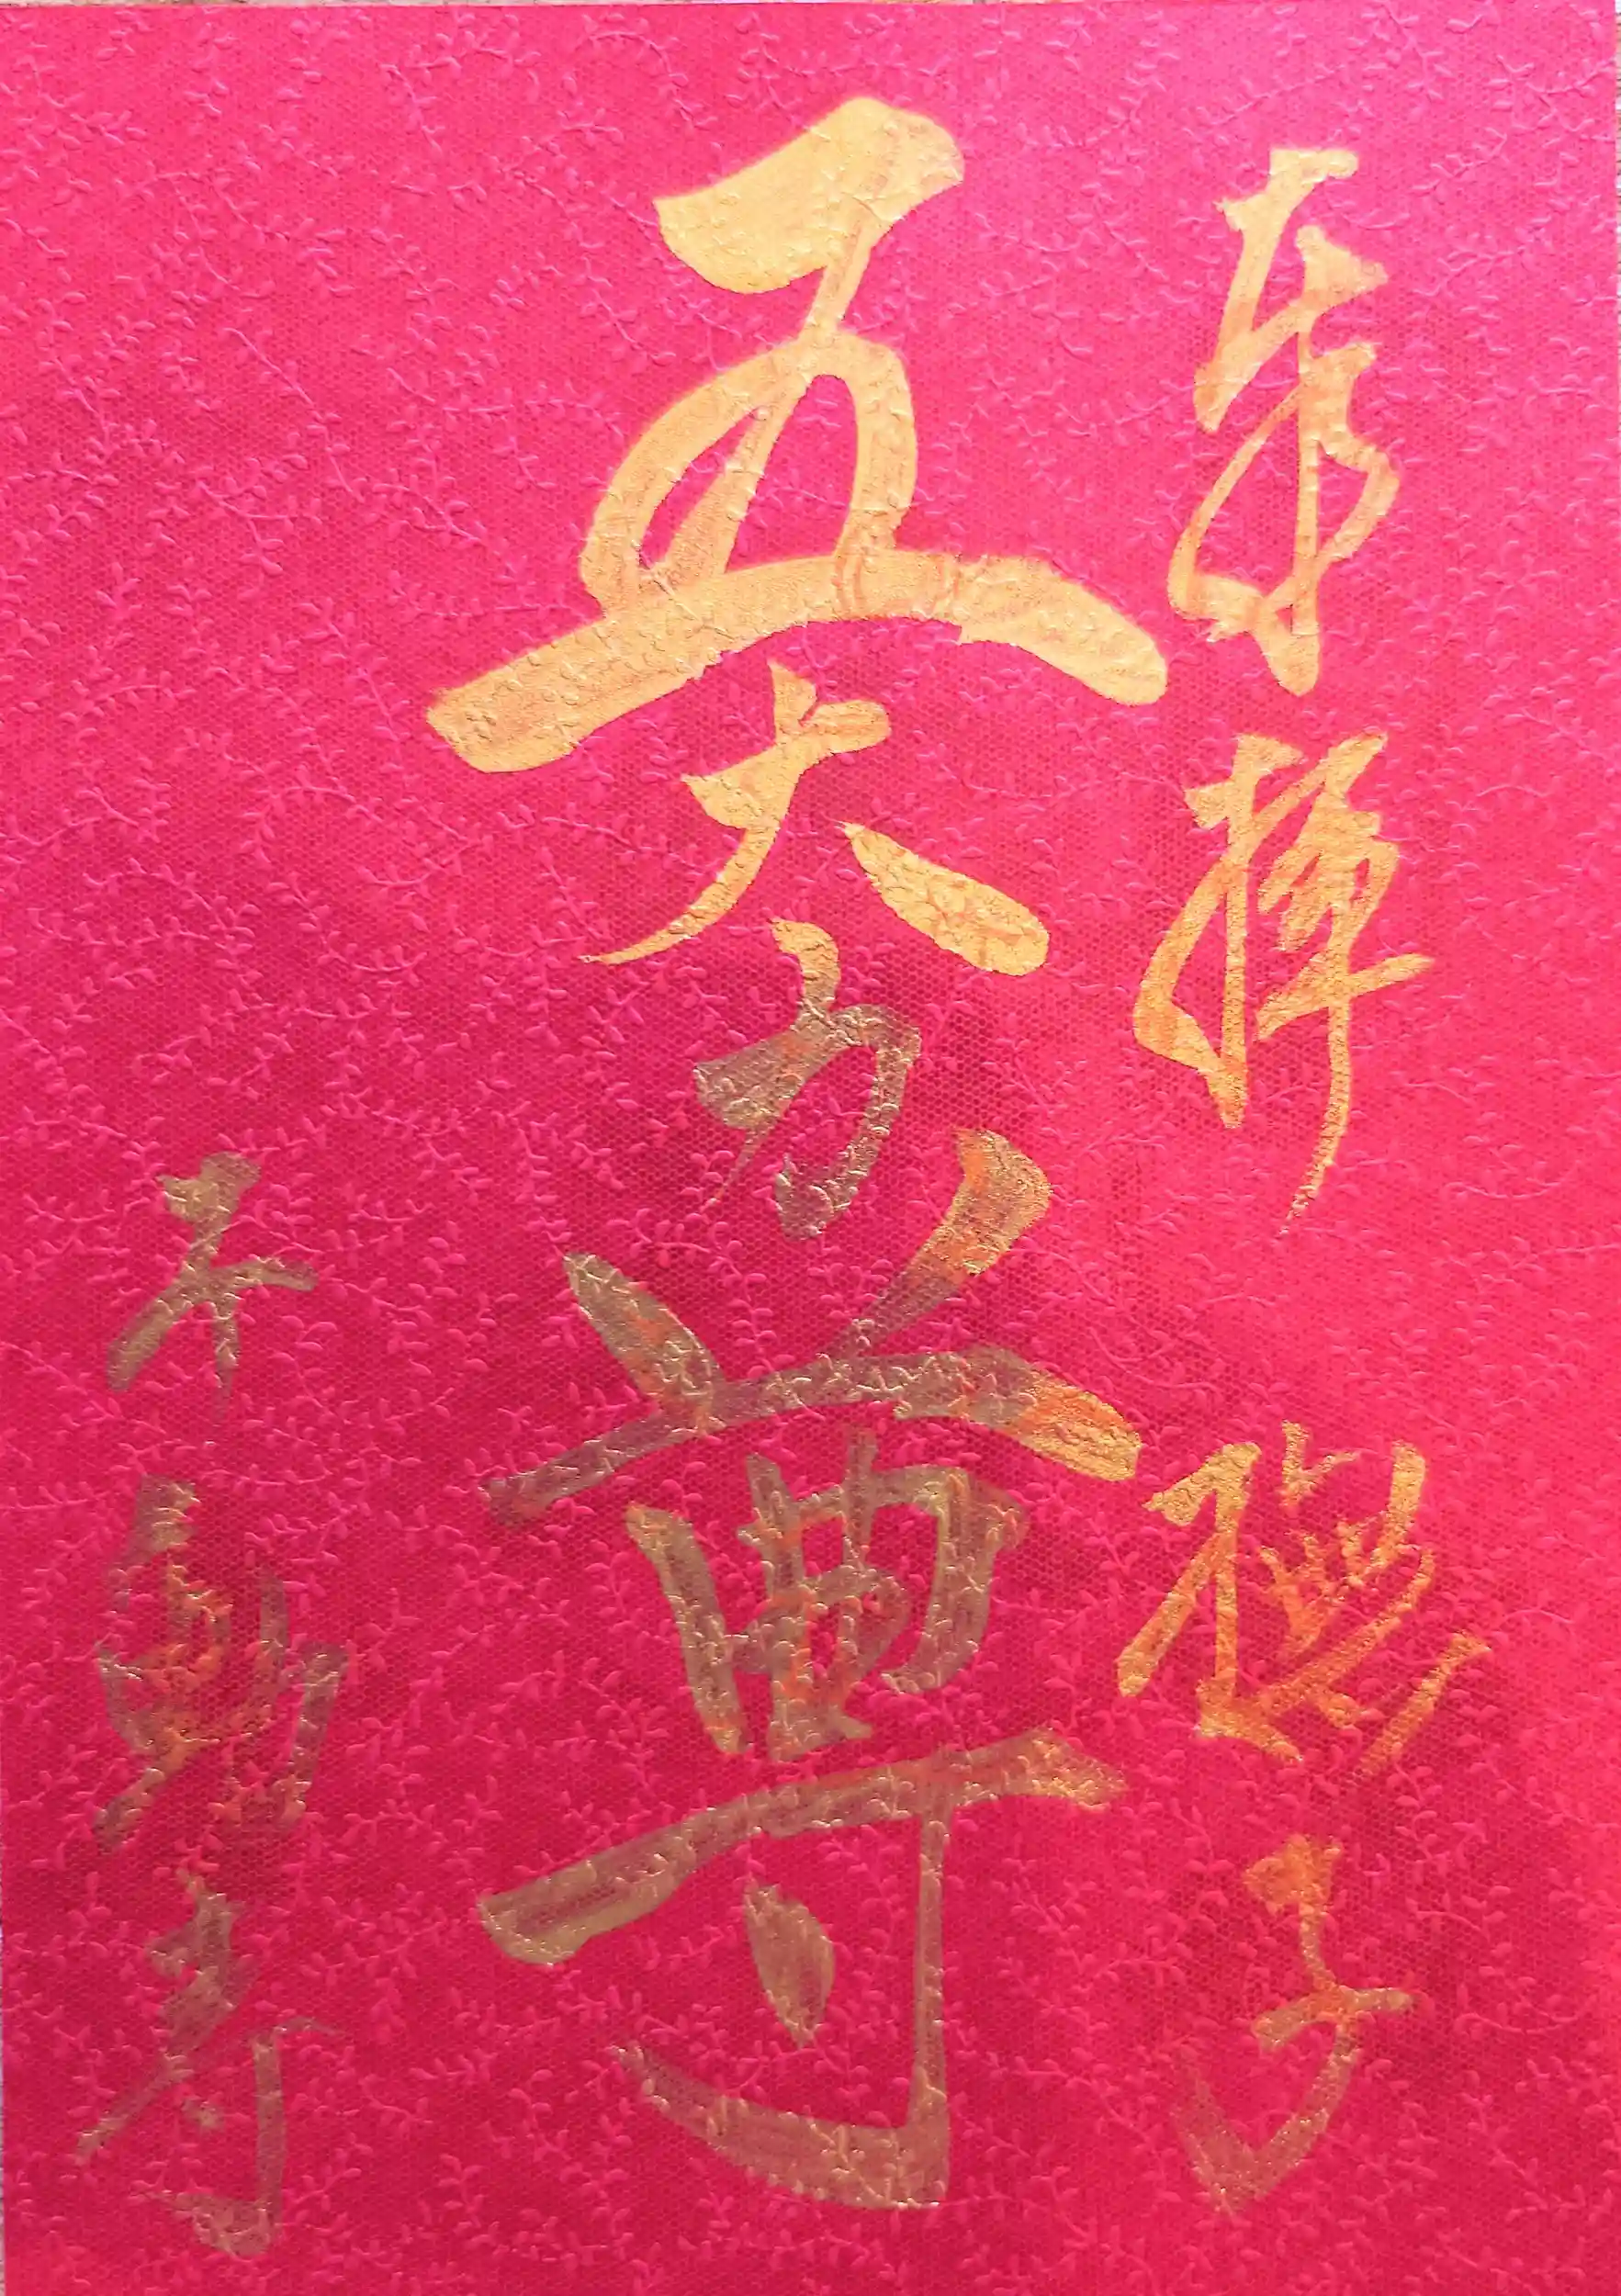 奉拝 子
五大力尊
不動寺